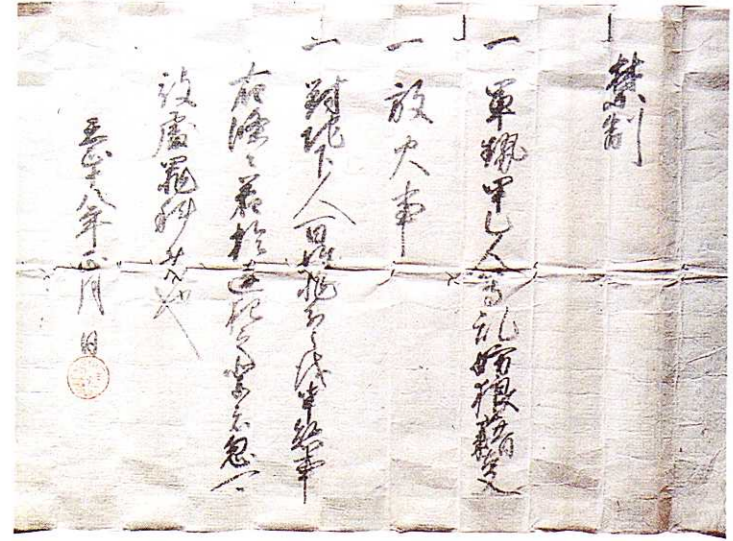 禁制
一 軍勢甲乙人等乱妨狼藉事
一 放火事
一 對地下人百姓非分之儀申懸事
右條々若於違犯之輩者忽可
被處罪科者也
天正十八年正月 日